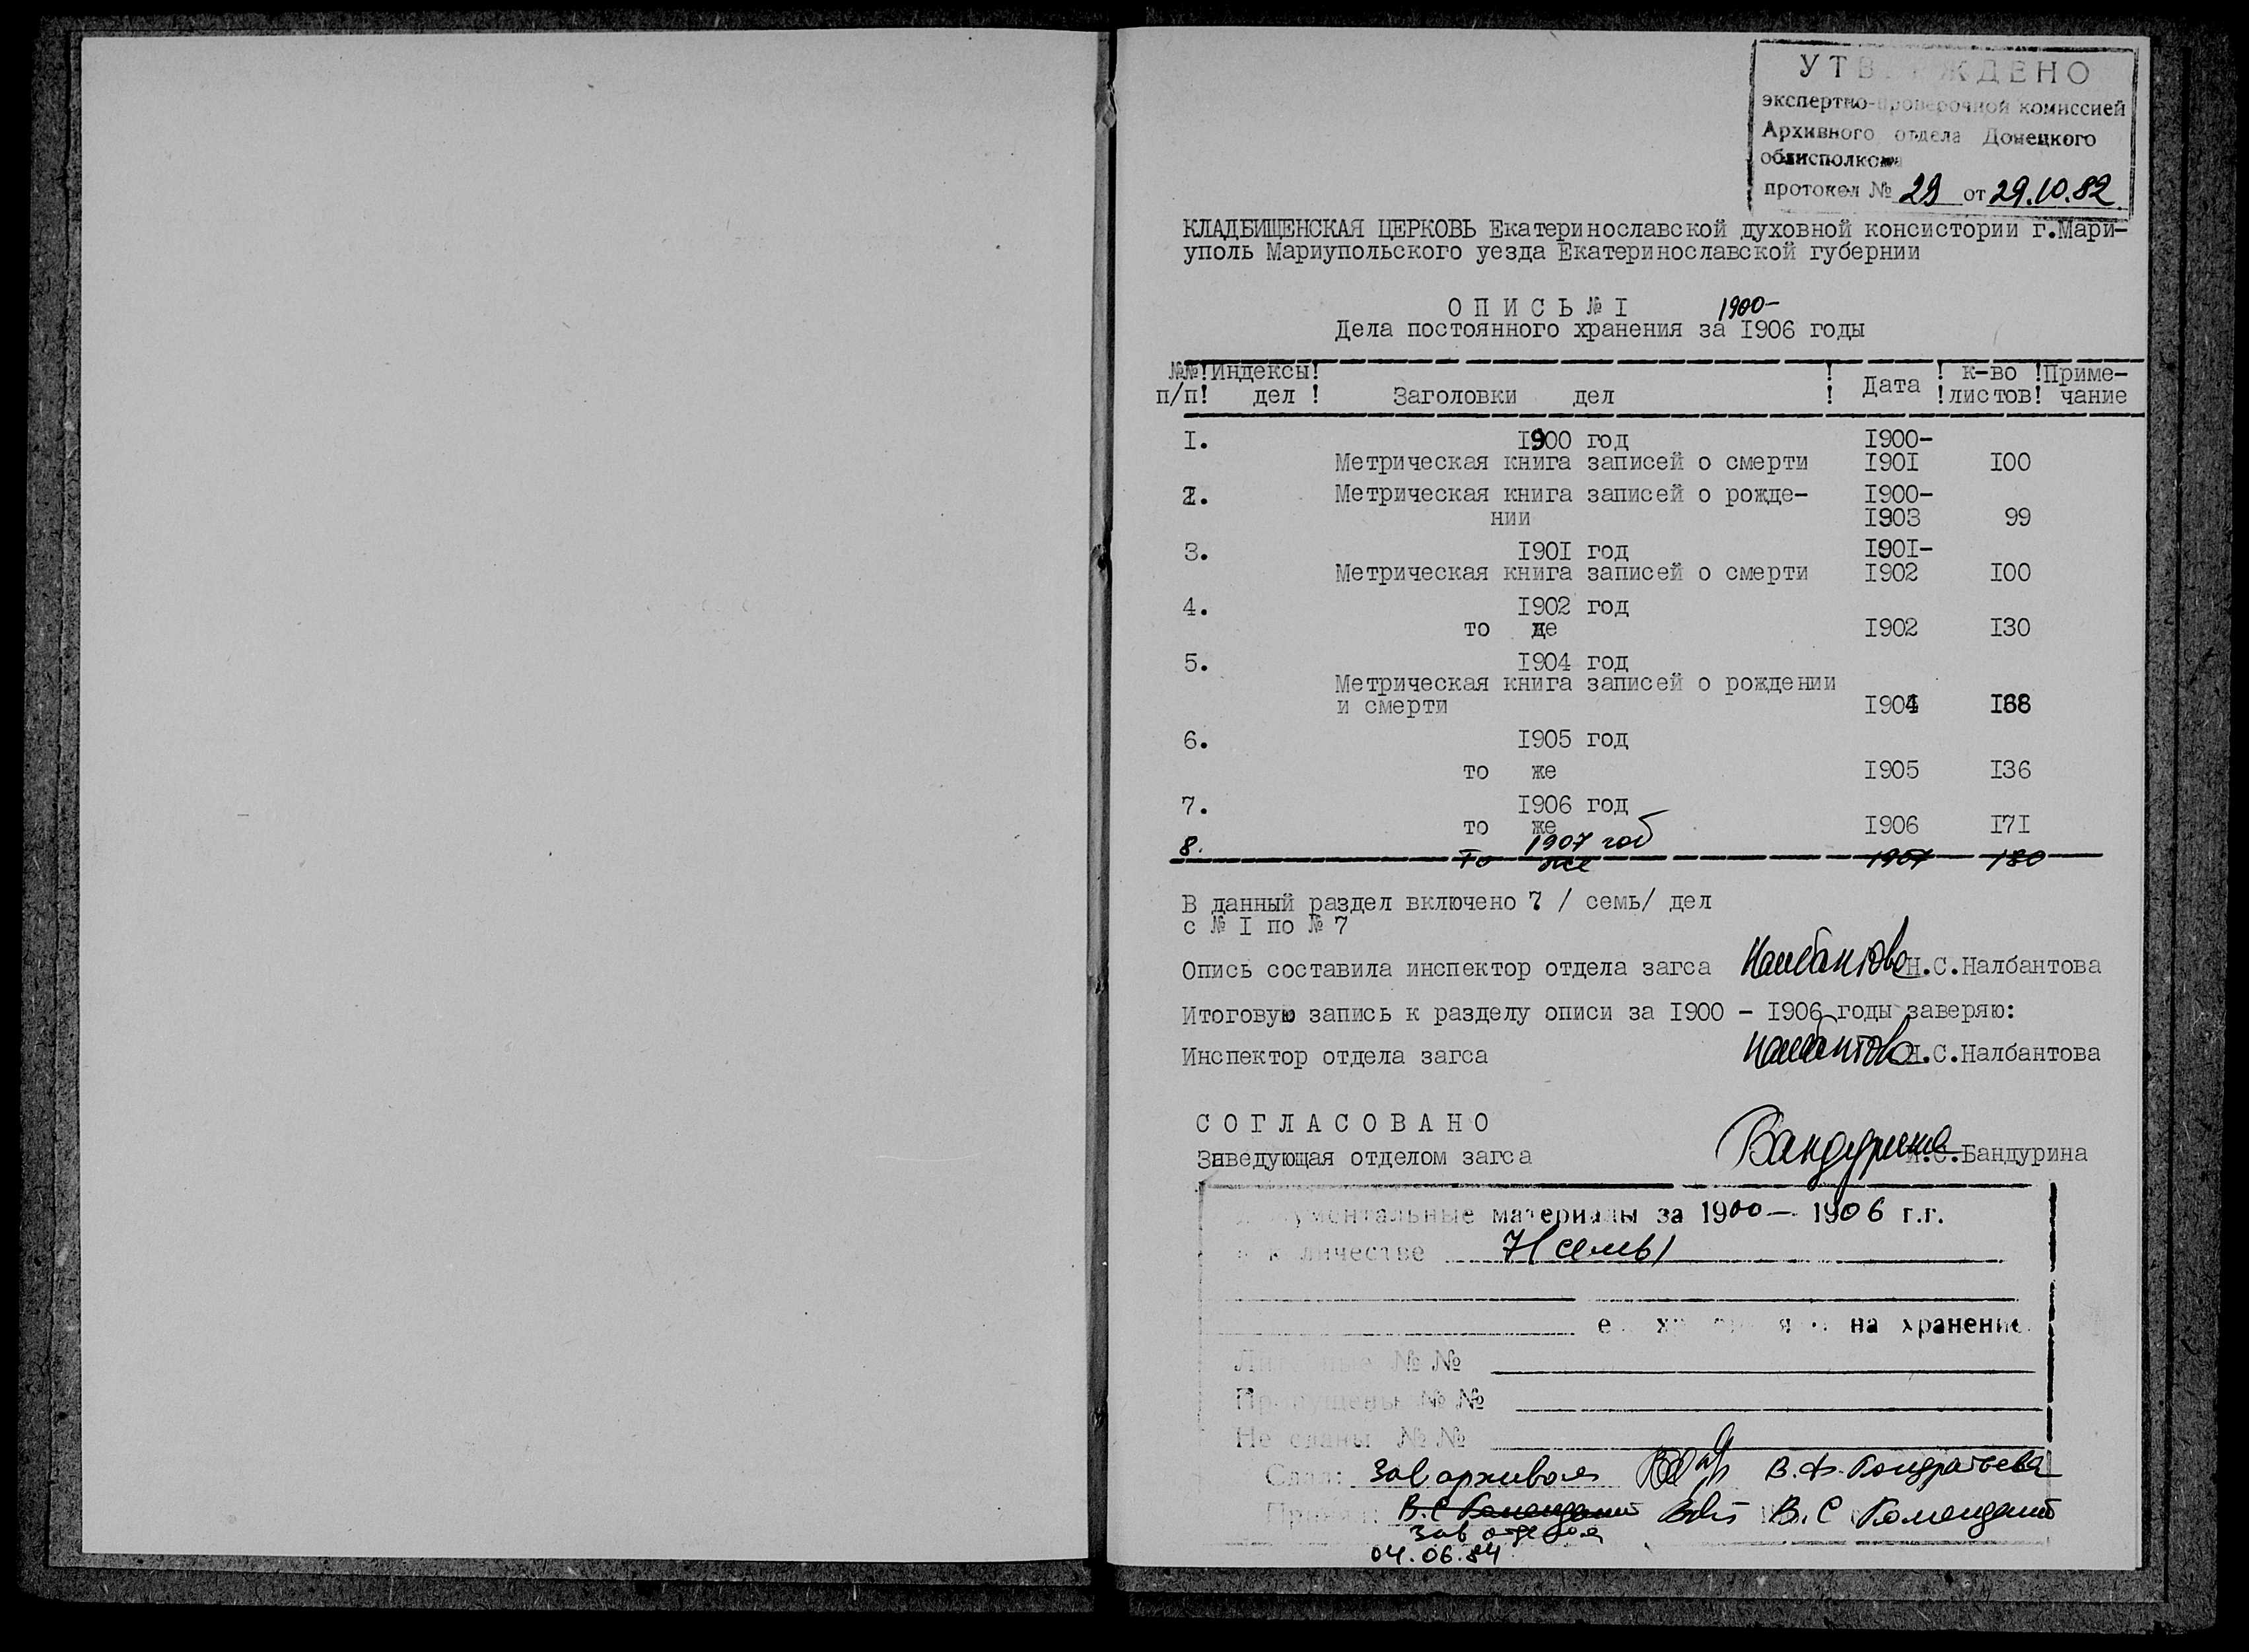 УТВЕРЖДЕНО
экспертно-проверочной комиссией
Архивного отдела Донецкого
облисполкома
протокол № 29 от 29.10.82
КЛАДБИЩЕНСКАЯ ЦЕРКОВЬ Екатеринославской духовной консистории г.Мари-
уполь Мариупольского уезда Екатеринославской губернии
О П И С Ь № I 1900-
Дела постоянного хранения за I906 годы
№№!Индексы! ! ! к-во !Приме-
п/п! дел ! Заголовки дел ! Дата !листов! чание
I. I900 год I900-
Метрическая книга записей о смерти I90I I00
2. Метрическая книга записей о рожде- I900-
нии I903 99
3. I90I год I90I-
Метрическая книга записей о смерти I902 I00
4. I902 год
то же I902 I30
5. I904 год
Метрическая книга записей о рождении
и смерти I904 I68
6. I905 год
то же I905 I36
7. I906 год
то же I906 I7I
8. 1907 год
то же 1907 180
В данный раздел включено 7 / семь/ дел
с № I по № 7
Опись составила инспектор отдела загса Налбантова Н.С.Налбантова
Итоговую запись к разделу описи за I900 - I906 годы заверяю:
Инспектор отдела загса Налбантова Н.С.Налбантова
С О Г Л А С О В А Н О
Заведующая отделом загса Бандурина .С.Бандурина
Документальные материалы за 1900 — 1906 г.г.
в количестве 7 (семь)
на хранение
Литерные № №
Пропущены № №
Не сданы № №
Сдал: Зав архивом В.Ф. Кондратьева
Принял: В.С. Комендант В.С Комендант
Зав отделом
04.06.84